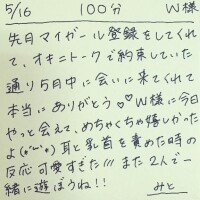 5/16 100分 W様
先日マイガール登録をしてくれ
て、オキニトークで約束していた
通り5月中に会いに来てくれて
本当にありがとう♡♡W様に今日
やっと会えて、めちゃくちゃ嬉しかった
よ(*´ω`*)耳と乳首を責めた時の
反応可愛すぎた///また2人で一
緒に遊ぼうね!!
みと